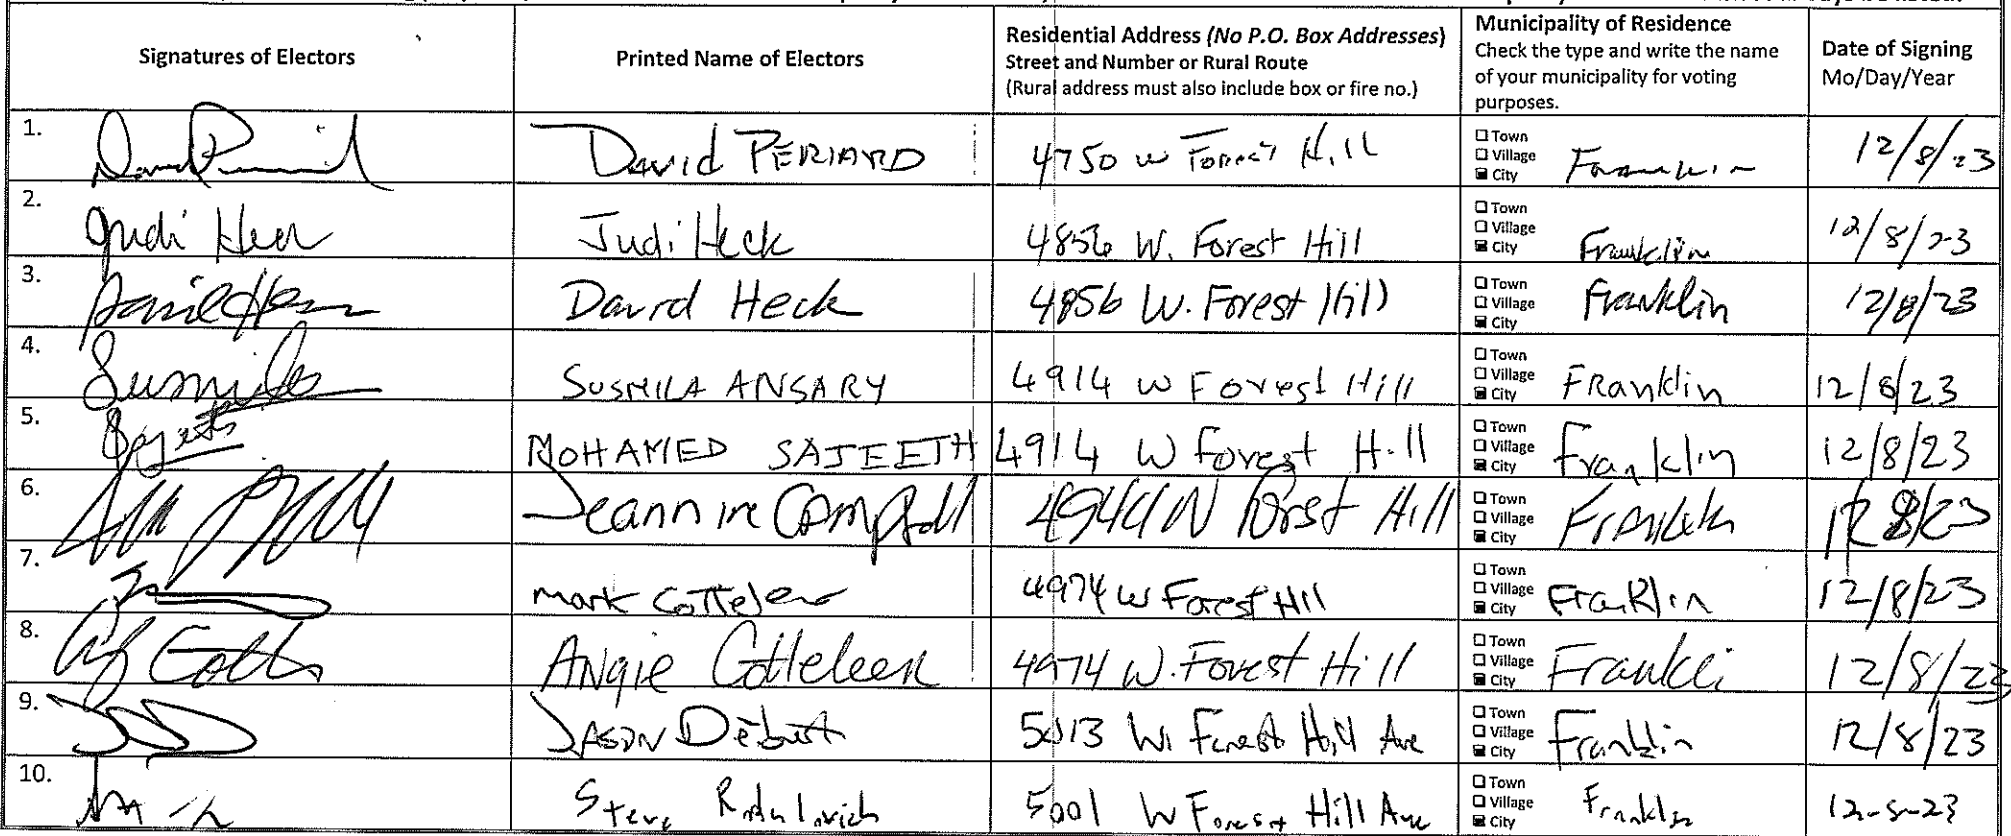 Signatures of Electors
Printed Name of Electors
Residential Address (No P.O. Box Addresses)
Street and Number or Rural Route
(Rural address must also include box or fire no.)
Municipality of Residence
Check the type and write the name
of your municipality for voting
purposes.
Date of Signing
Mo/Day/Year
1. David PERIARD 4750 W Forest Hill Town Village City Franklin 12/8/23
2. Judi Heck Judi Heck 4856 W. Forest Hill Town Village City Franklin 12/8/23
3. David Heck 4856 W. Forest Hill Town Village City Franklin 12/8/23
4. Susmila SUSMILA ANSARY 4914 W Forest Hill Town Village City FRanklin 12/8/23
5. MOHAMED SAJEETH 4914 W Forest Hill Town Village City Franklin 12/8/23
6. Jeannine Campbell Forest Hill Town Village City Franklin 12 8/23
7. Mark 4974 W Forest Hill Town Village City Franklin 12/8/23
8. Angie Cotteleer 4974 W. Forest Hill Town Village City Frankli 12/8/23
9. JASON 5013 W. Forest Hill Ave Town Village City Franklin 12/8/23
10. Steve 5001 W Forest Hill Ave Town Village City Franklin 12-8-23